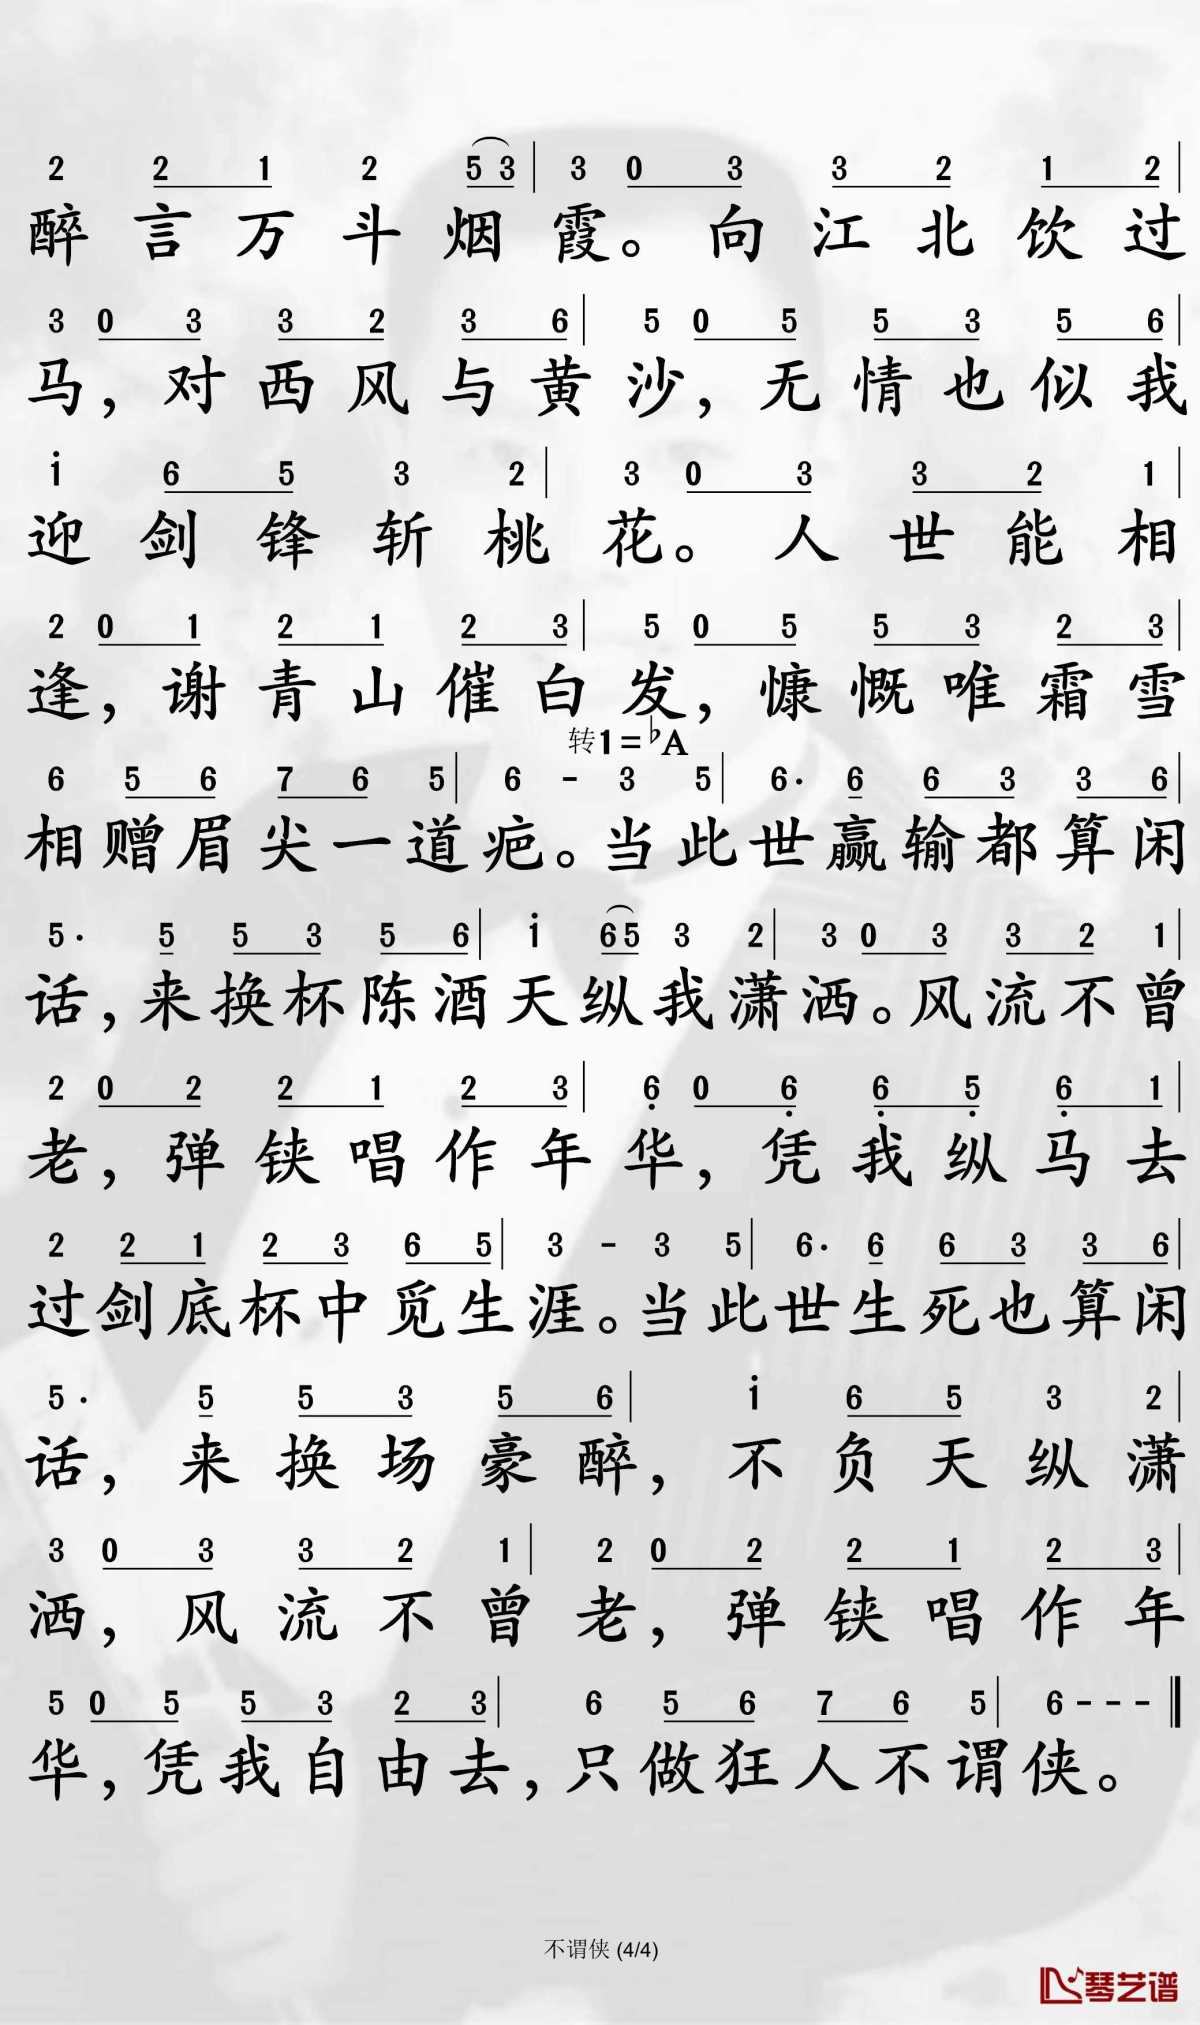 2 2 1 2 5 3 | 3 0 3 3 2 1 2 |
醉言万斗烟霞。向江北饮过
3 0 3 3 2 3 6 | 5 0 5 5 3 5 6 |
马，对西风与黄沙，无情也似我
i 6 5 3 2 | 3 0 3 3 2 1 |
迎剑锋斩桃花。人世能相
2 0 1 2 1 2 3 | 5 0 5 5 3 2 3 |
逢，谢青山催白发，慷慨唯霜雪
转1=♭A
6 5 6 7 6 5 | 6 - 3 5 | 6· 6 6 3 3 6 |
相赠眉尖一道疤。当此世赢输都算闲
5· 5 5 3 5 6 | i 6 5 3 2 | 3 0 3 3 2 1 |
话，来换杯陈酒天纵我潇洒。风流不曾
2 0 2 2 1 2 3 | 6̣ 0 6̣ 6̣ 5̣ 6̣ 1 |
老，弹铗唱作年华，凭我纵马去
2 2 1 2 3 6 5 | 3 - 3 5 | 6· 6 6 3 3 6 |
过剑底杯中觅生涯。当此世生死也算闲
5· 5 5 3 5 6 | i 6 5 3 2 |
话，来换场豪醉，不负天纵潇
3 0 3 3 2 1 | 2 0 2 2 1 2 3 |
洒，风流不曾老，弹铗唱作年
5 0 5 5 3 2 3 | 6 5 6 7 6 5 | 6 - - - ‖
华，凭我自由去，只做狂人不谓侠。
不谓侠 (4/4)
琴艺谱